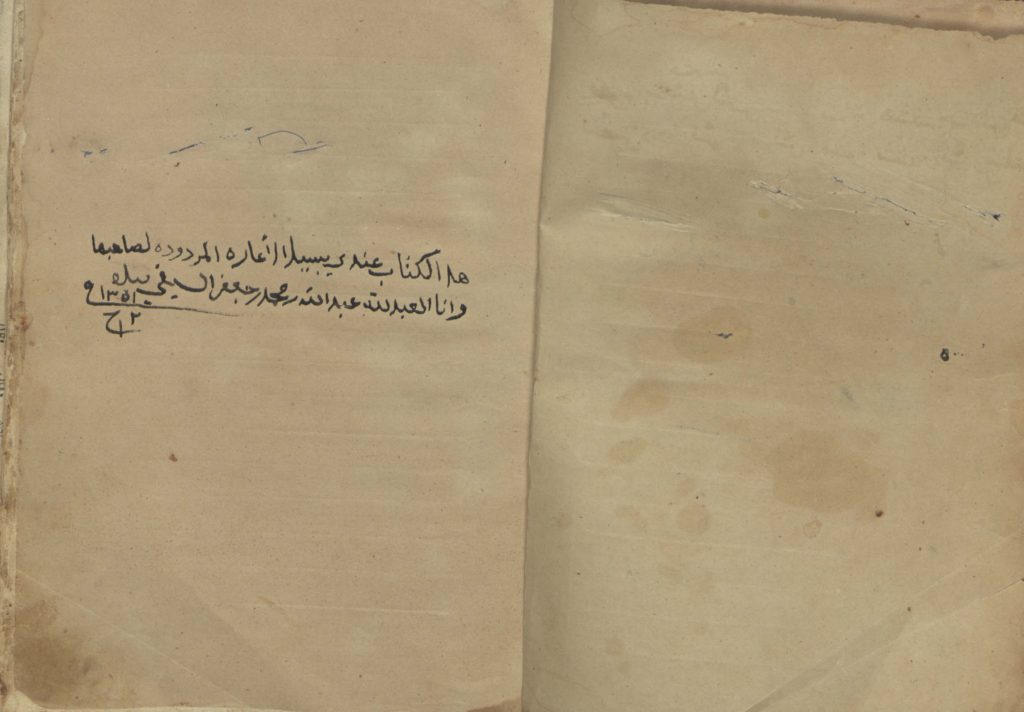 هدا الكتاب عندي بسبيل الأعاره المردوده لصاحبها
وانا العبد لله عبدالله محمد جعفر السيفي بيده
١٣٥١
١٢
٥